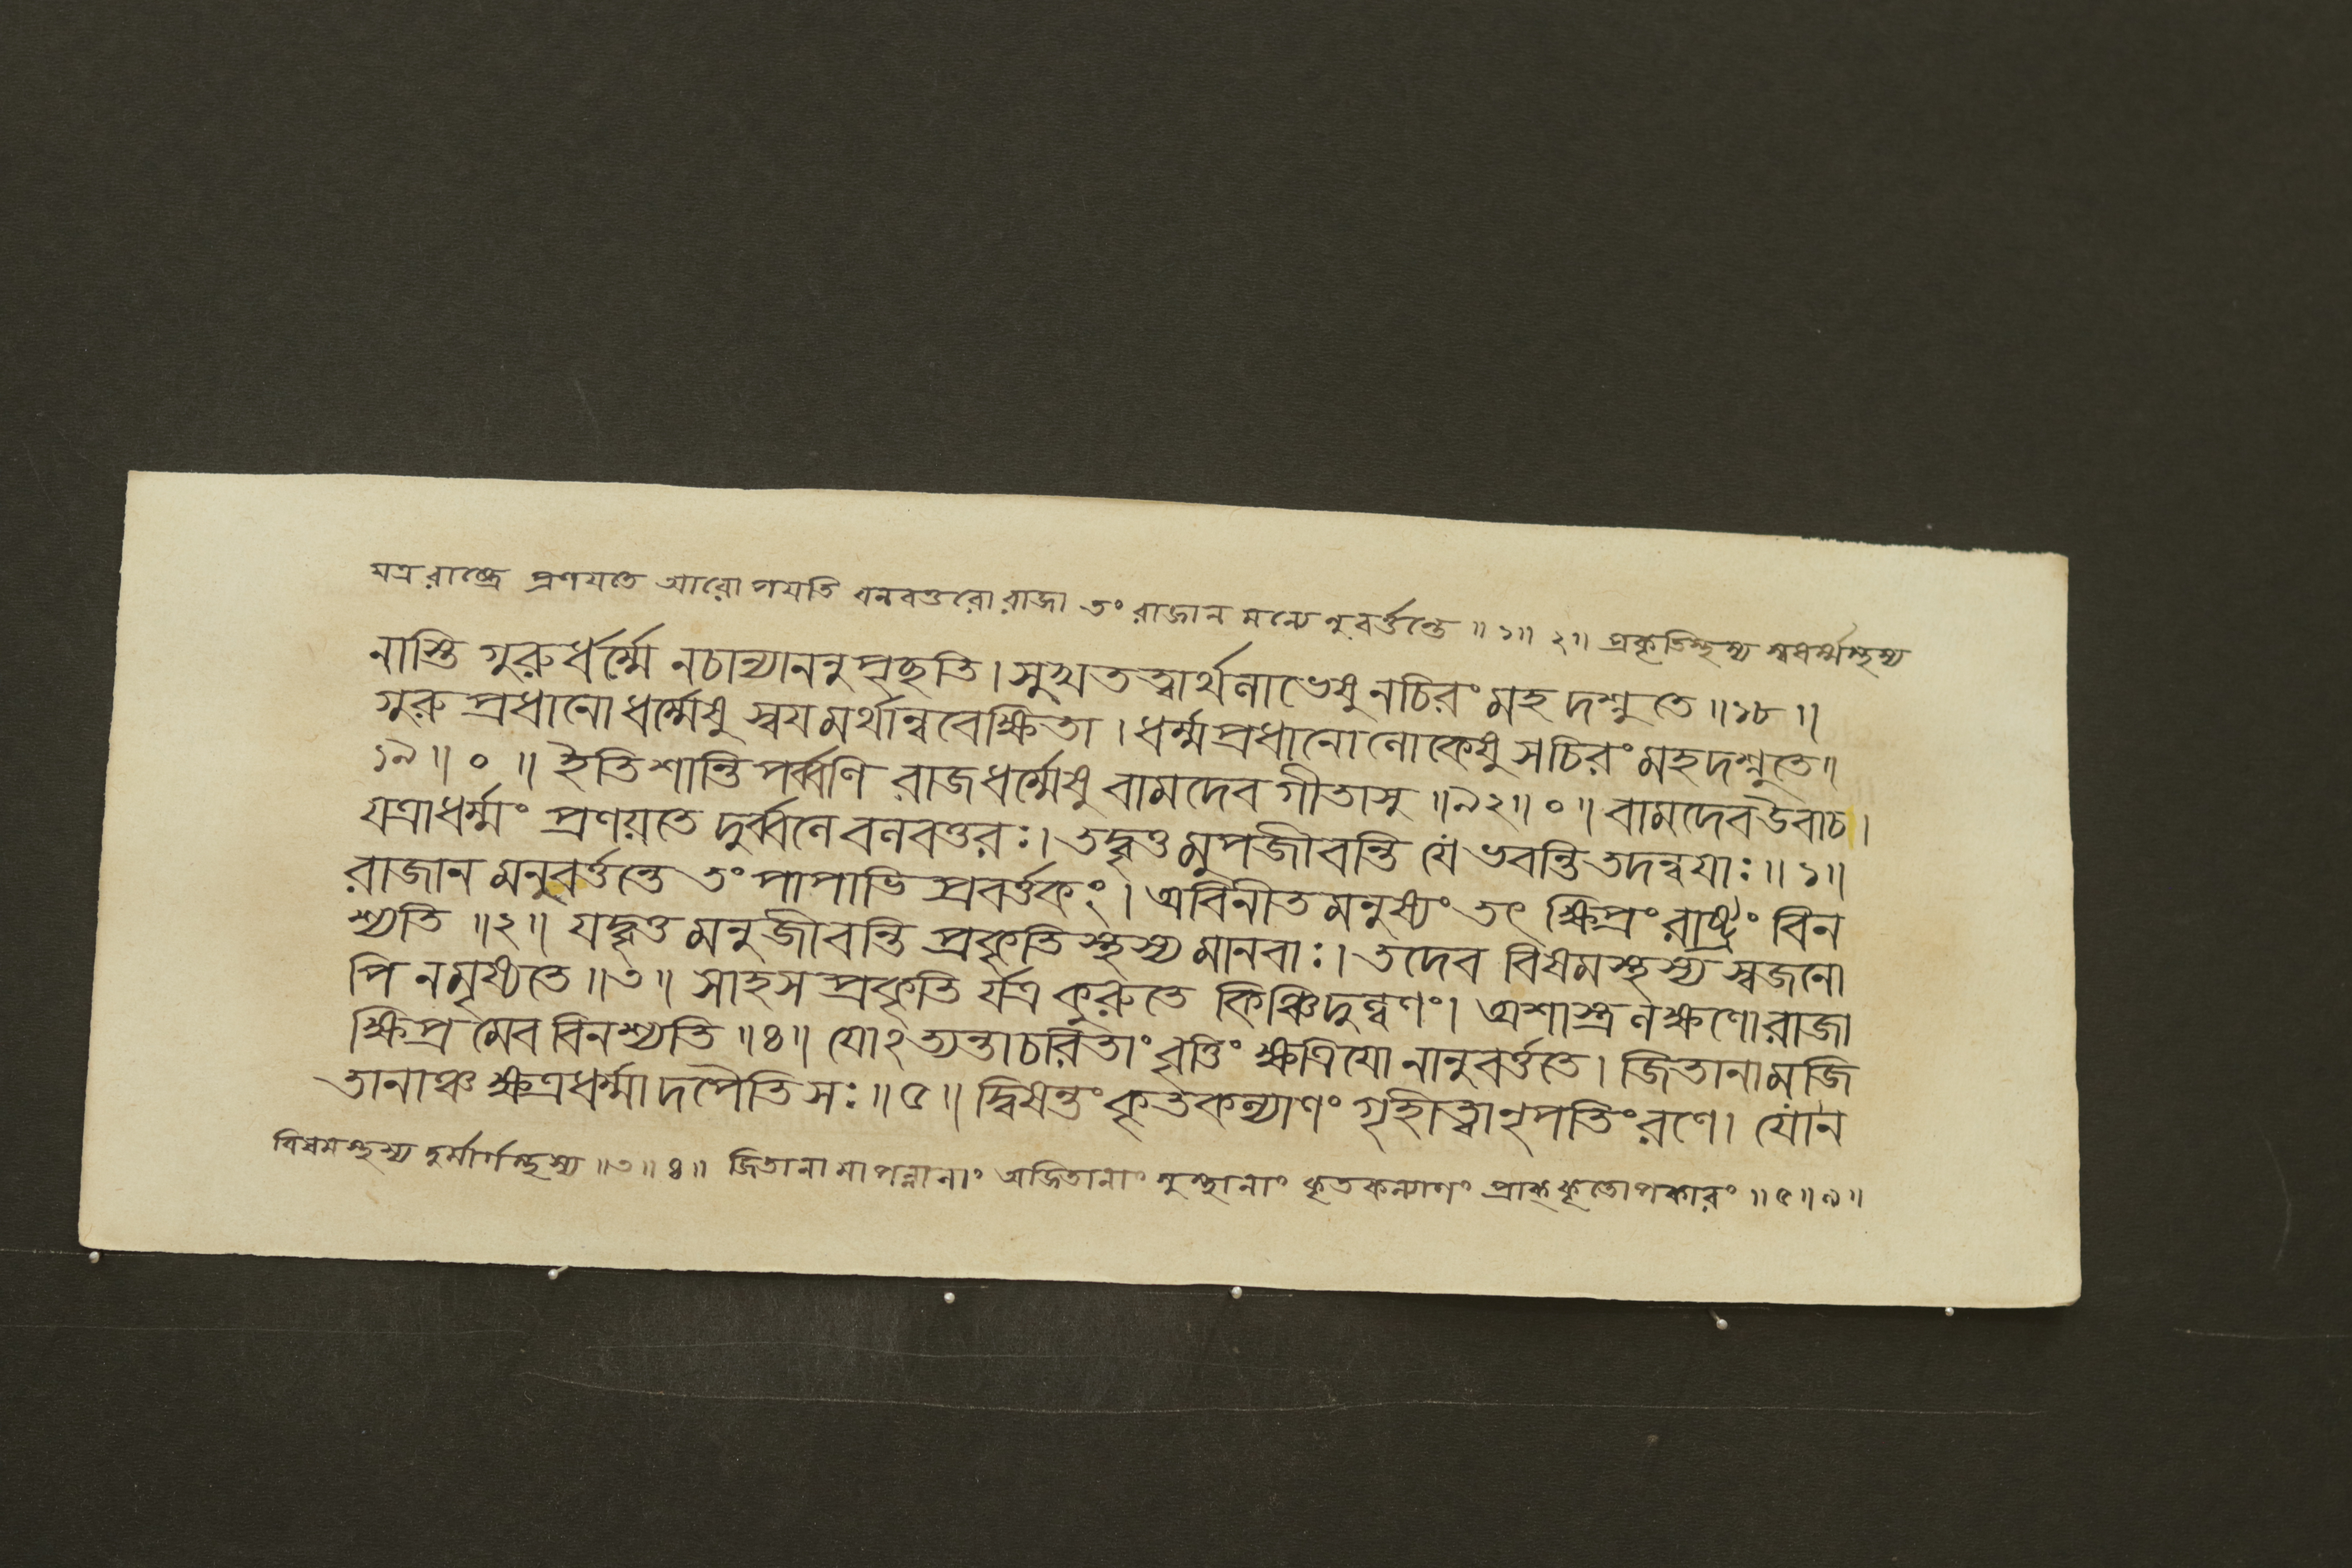 যত্র রাষ্ট্রে প্রণযতে আরোপযতি বলবত্তরো রাজা তং রাজান মন্যে নুবর্ত্তন্তে ॥ ১॥ ২॥ প্রকৃতিস্থস্য স্বধর্ম্মস্থস্য
নাস্তি গুরুর্ধর্ম্মে নচান্যাননুপৃছতি। সুখতত্বার্থলাভেষু নচিরং মহদশ্নুতে ॥১৮॥
গুরু প্রধানো ধর্ম্মেষু স্বযমর্থান্ববেক্ষিতা। ধর্ম্মপ্রধানোলোকেষু সচিরং মহদশ্নুতে॥
১৯॥ ০ ॥ ইতি শান্তি পর্ব্বণি রাজধর্ম্মেষু বামদেব গীতাসু ॥৯২॥ ০॥ বামদেব উবাচ।
যত্রাধর্ম্মং প্রণয়তে দুর্ব্বলে বলবত্তরঃ। তদ্বৃত্ত মুপজীবন্তি যে ভবন্তি তদন্বযাঃ॥ ১॥
রাজান মনুবর্ত্তন্তে তং পাপাভি প্রবর্ত্তকং। অবিনীত মনুষ্যং তৎ ক্ষিপ্রং রাষ্ট্রং বিন
শ্যতি ॥২॥ যদ্বৃত্ত মনুজীবন্তি প্রকৃতি স্থস্য মানবাঃ। তদেব বিষমস্থস্য স্বজনো
পি নমৃষ্যতে ॥৩॥ সাহস প্রকৃতি র্যত্র কুরুতে কিঞ্চিদুল্বণং। অশাস্ত্র লক্ষণোরাজা
ক্ষিপ্র মেব বিনশ্যতি ॥৪॥ যোঽত্যন্তাচরিতাং বৃত্তিং ক্ষত্রিযো নানুবর্ত্ততে। জিতানামজি
তানাঞ্চ ক্ষত্রধর্ম্মাদপৈতি সঃ॥ ৫॥ দ্বিষন্তং কৃতকল্যাণং গৃহীত্বা নৃপতিং রণে। যোন
বিষমস্থস্য দুর্মার্গস্থস্য ॥৩॥ ৪॥ জিতানা মাপন্নানাং অজিতানাং সুস্থানাং কৃতকল্যাণং প্রাক্ কৃতোপকারং ॥ ৫॥ ৯॥